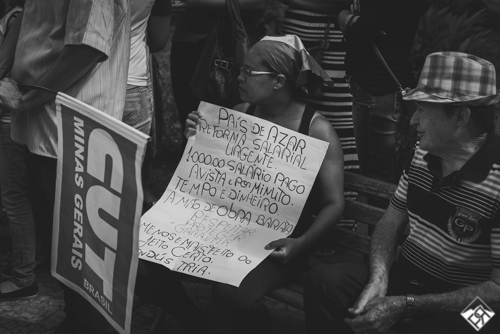 CUT
MINAS GERAIS
BRASIL
PAÍS DE AZAR
REFORMA SALARIAL
URGENTE.
SALÁRIO PAGO
AVISTA E POR MINUTO.
TEMPO É DINHEIRO
A MÃO DE OBRA BARATO
MENOS
JEITO CERTO.
INDÚSTRIA.